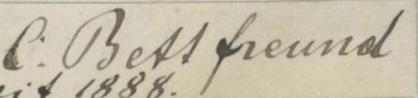 C. Bettfreund
1888.